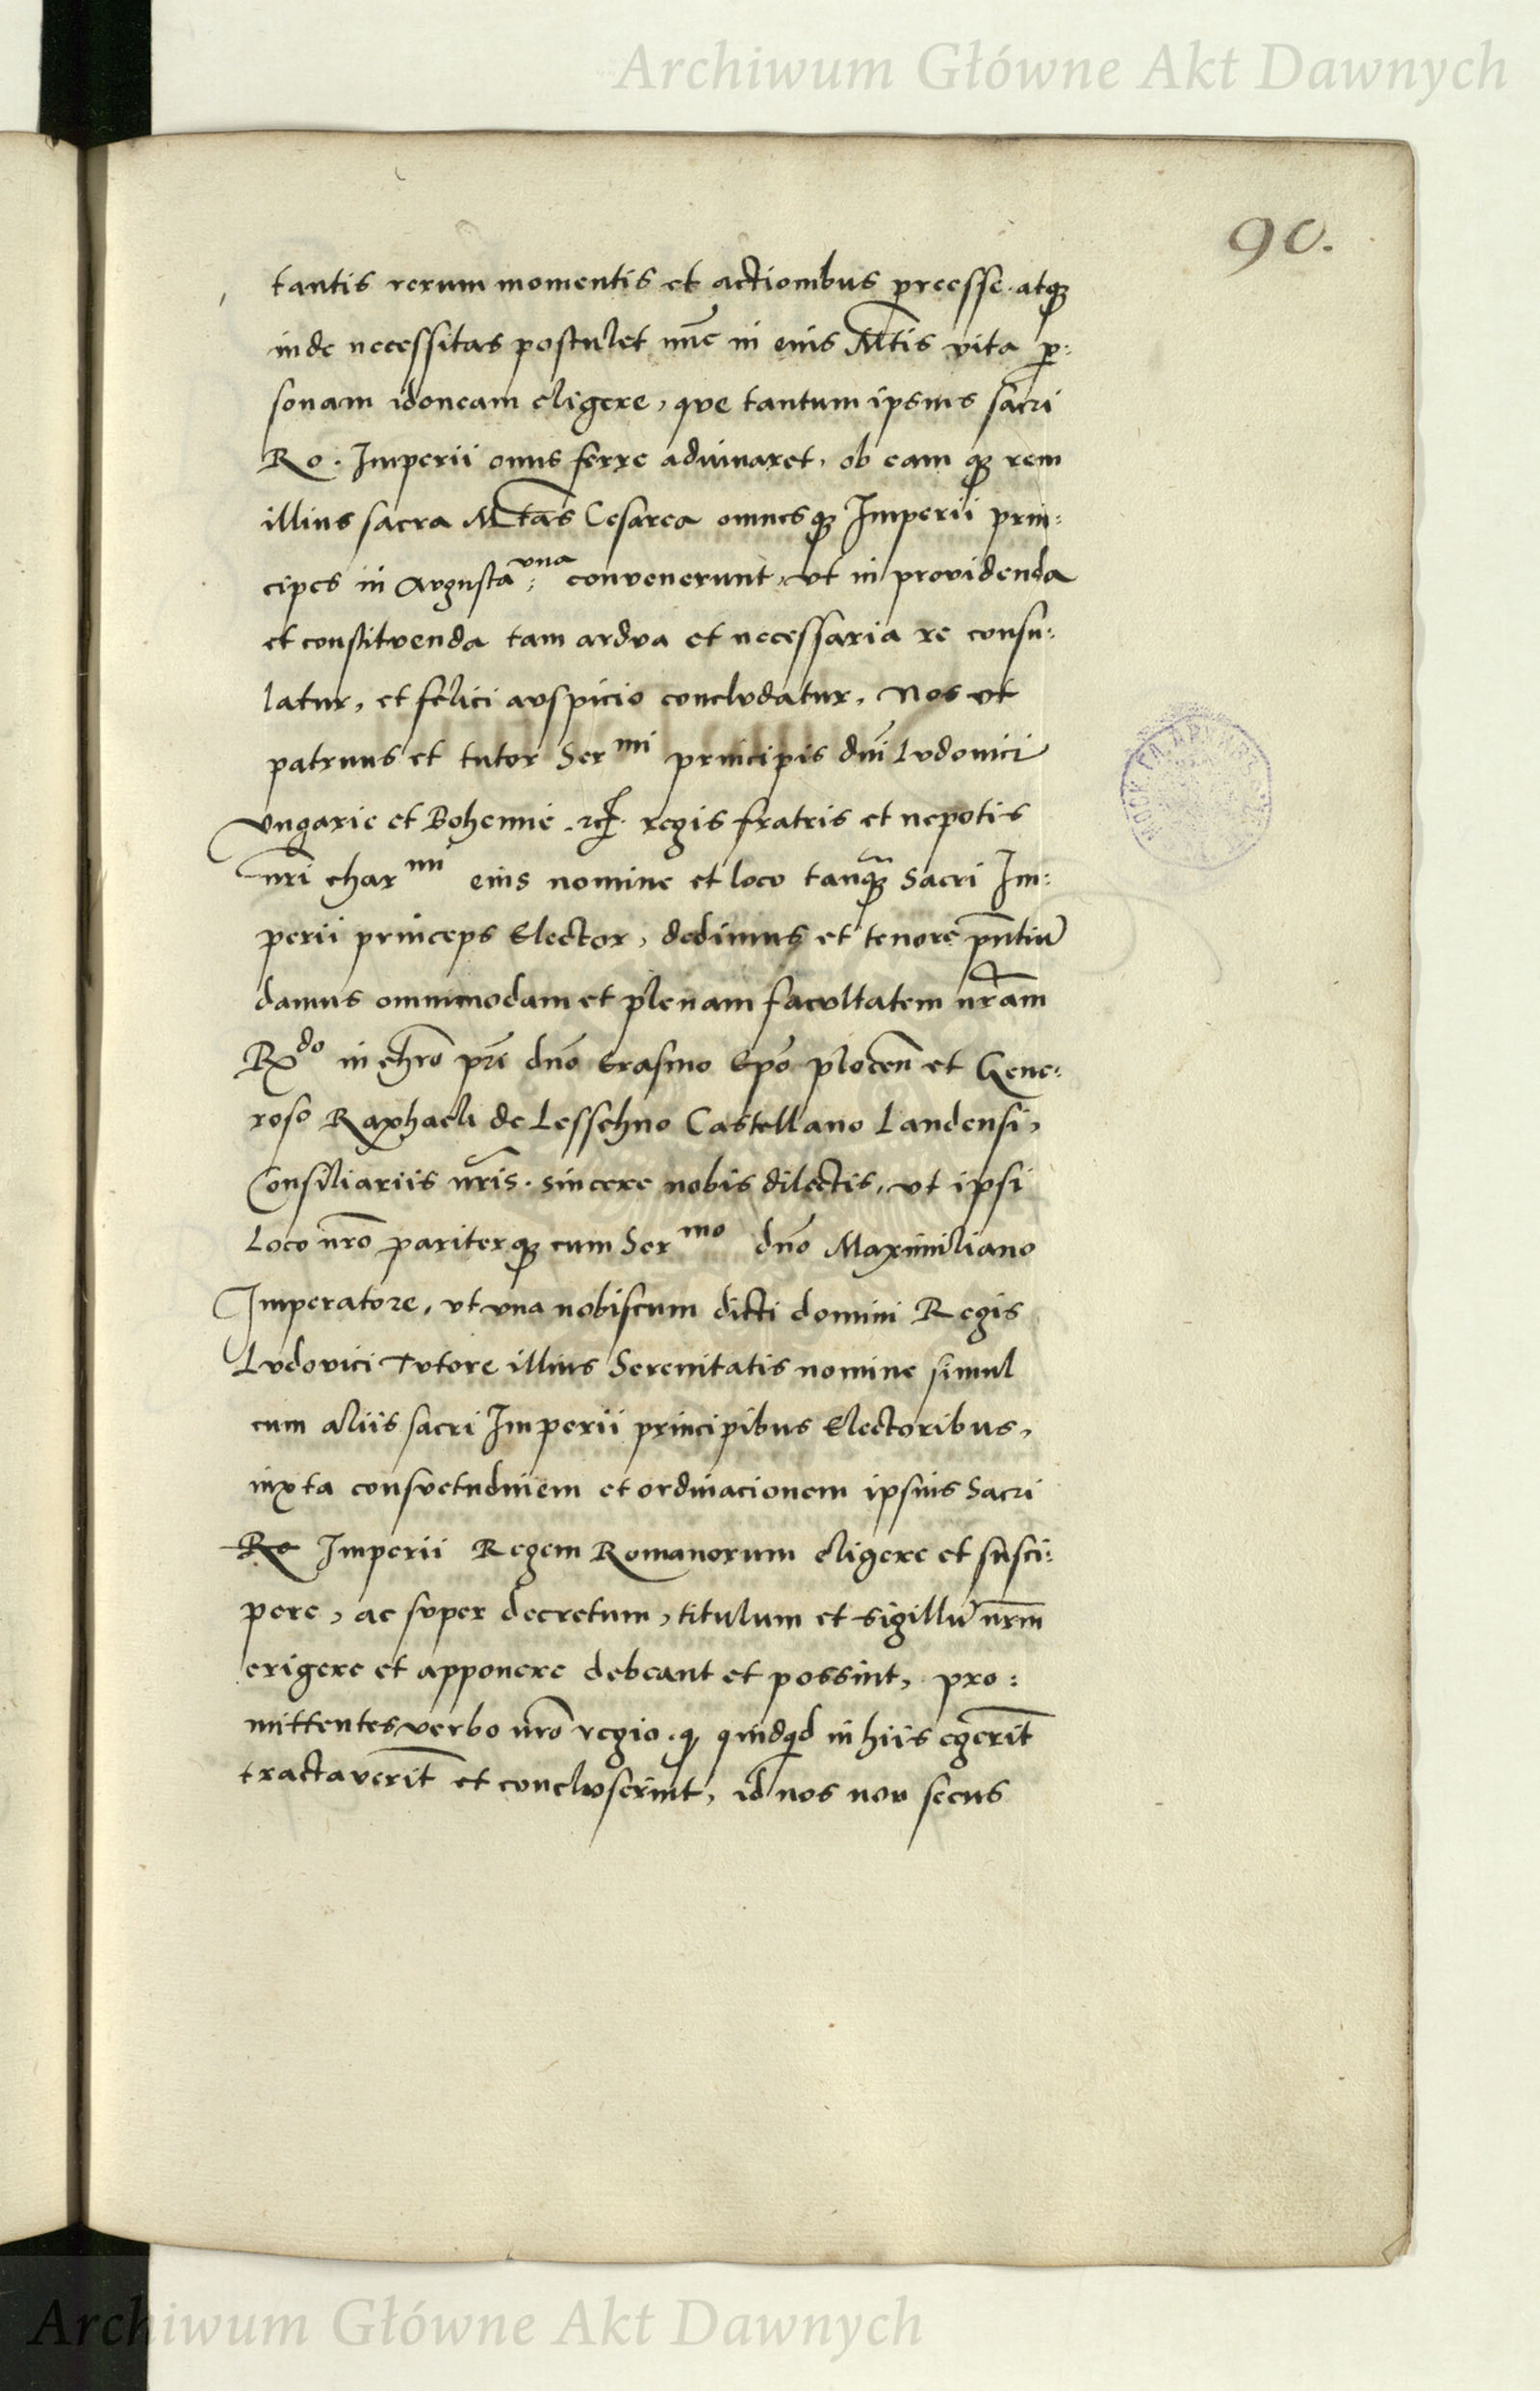 Archiwum Główne Akt Dawnych
90.
tantis rerum momentis et actionibus preesse. atq3
inde necessitas postulet nūc in eius Mtis vita p:
sonam idoneam eligere, que tantum ipsius sacri
Ro. Imperii onus ferre adiuuaret, ob eam q3 rem
illius sacra Mtas Cesarea omnesq3 Imperii prin:
cipes in Avgusta vna convenerunt, vt in providenda
et constitvenda tam ardva et necessaria re consu:
latur, et felici avspicio conclvdatur, Nos vt
patruus et tutor Ser mi principis dni Lvdovici
vngarie et Bohemie .rcꝭ. regis fratris et nepotis
nri char mi eius nomine et loco tanq̃3 Sacri Im:
perii princeps Elector, dedimus et tenore pn̄tiū
damus omnimodam et plenam facvltatem nr̄am
Rdo in chro pri dno Erasmo Epo plocen̄ et Gene:
roso Raphaeli de Lesschno Castellano Landensi,
Consiliariis nr̄is. sincere nobis dilectis, vt ipsi
Loco nr̄o pariterq3 cum Ser mo dn̄o Maximiliano
Imperatore, vt vna nobiscum dicti domini Regis
Lvdovici Tvtore illius Serenitatis nomine simul
cum aliis sacri Imperii principibus Electoribus,
iuxta consvetudinem et ordinacionem ipsius Sacri
Ro Imperii Regem Romanorum eligere et susci:
pere, ac svper decretum, titulum et sigillū nr̄m
erigere et apponere debeant et possint, pro:
mittentes verbo nr̄o regio. q̨ quidq̇d in hiis egerīt
tractaverīt et conclvserint, id nos non secus
Archiwum Główne Akt Dawnych